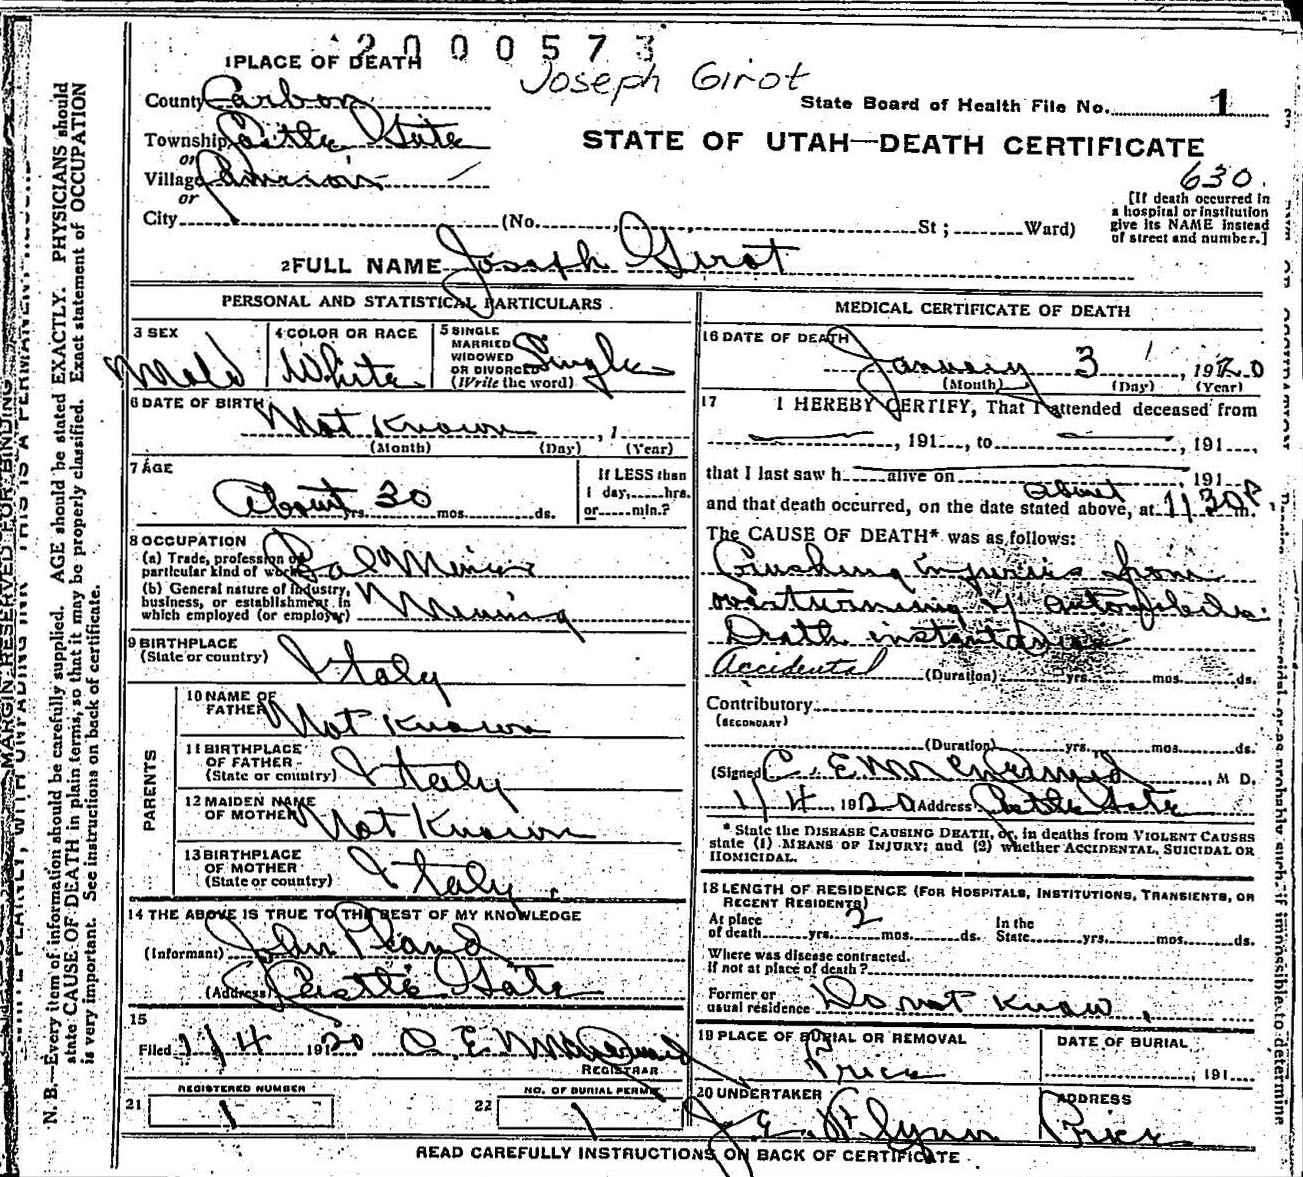 2000573
Joseph Girot
1 PLACE OF DEATH
County Carbon
State Board of Health File No. 1
Township Castle Gate
or
STATE OF UTAH—DEATH CERTIFICATE
Village
or
630.
City (No. St; Ward)
[If death occurred in
a hospital or institution
give its NAME instead
of street and number.]
2 FULL NAME Joseph Girot
PERSONAL AND STATISTICAL PARTICULARS
3 SEX
Male
4 COLOR OR RACE
White
5 SINGLE
MARRIED
WIDOWED
OR DIVORCED
(Write the word)
Single
6 DATE OF BIRTH
Not Known , 1
(Month) (Day) (Year)
7 AGE
About 30
yrs. mos. ds.
If LESS than
1 day, hrs.
or min.?
8 OCCUPATION
(a) Trade, profession or
particular kind of work Coal Miner
(b) General nature of industry,
business, or establishment in
which employed (or employer) Mining
9 BIRTHPLACE
(State or country) Italy
PARENTS
10 NAME OF
FATHER Not Known
11 BIRTHPLACE
OF FATHER
(State or country) Italy
12 MAIDEN NAME
OF MOTHER Not Known
13 BIRTHPLACE
OF MOTHER
(State or country) Italy.
14 THE ABOVE IS TRUE TO THE BEST OF MY KNOWLEDGE
(Informant) John
(Address) Castle Gate
15
Filed 1/4 1920 C. E. McDermid
REGISTRAR
REGISTERED NUMBER
21 1
NO. OF BURIAL PERMIT
22 1
MEDICAL CERTIFICATE OF DEATH
16 DATE OF DEATH
January 3, 1920
(Month) (Day) (Year)
17 I HEREBY CERTIFY, That I attended deceased from
, 191 , to , 191 ,
that I last saw h alive on , 191
about
and that death occurred, on the date stated above, at 11 30 P m.
The CAUSE OF DEATH* was as follows:
Crushing injuries from
overturning of automobile.
Death instantaneous
Accidental (Duration) yrs. mos. ds.
Contributory
(SECONDARY)
(Duration) yrs. mos. ds.
(Signed) C. E. McDermid, M D.
1/4, 1920 Address Castle Gate
* State the DISEASE CAUSING DEATH, or, in deaths from VIOLENT CAUSES
state (1) MEANS OF INJURY; and (2) whether ACCIDENTAL, SUICIDAL OR
HOMICIDAL.
18 LENGTH OF RESIDENCE (FOR HOSPITALS, INSTITUTIONS, TRANSIENTS, OR
RECENT RESIDENTS)
At place
of death yrs. 2 mos. ds. In the
State yrs. mos. ds.
Where was disease contracted.
if not at place of death?
Former or
usual residence Do not know.
19 PLACE OF BURIAL OR REMOVAL
Price
DATE OF BURIAL
, 191
20 UNDERTAKER
J. E. Flynn
ADDRESS
Price
READ CAREFULLY INSTRUCTIONS ON BACK OF CERTIFICATE
MARGIN RESERVED FOR BINDING
WRITE PLAINLY, WITH UNFADING INK—THIS IS A PERMANENT RECORD
N. B.—Every item of information should be carefully supplied. AGE should be stated EXACTLY. PHYSICIANS should
state CAUSE OF DEATH in plain terms, so that it may be properly classified. Exact statement of OCCUPATION
is very important. See instructions on back of certificate.